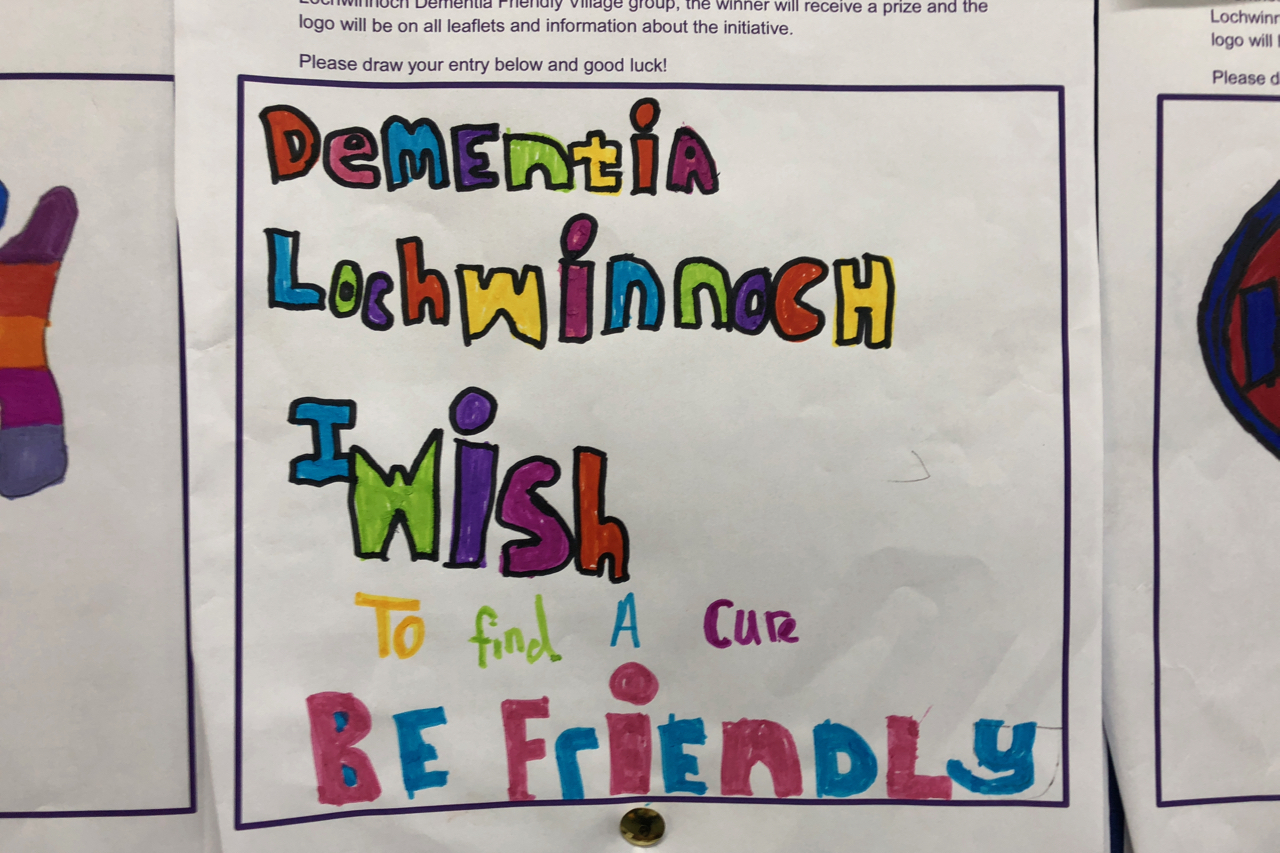 Lochwinnoch Dementia Friendly Village group, the winner will receive a prize and the
logo will be on all leaflets and information about the initiative.
Please draw your entry below and good luck!
DeMEntiA
LochwinnocH
I Wish
To find A Cure
BE FriEnDLy
Lochwinn
logo will
Please d